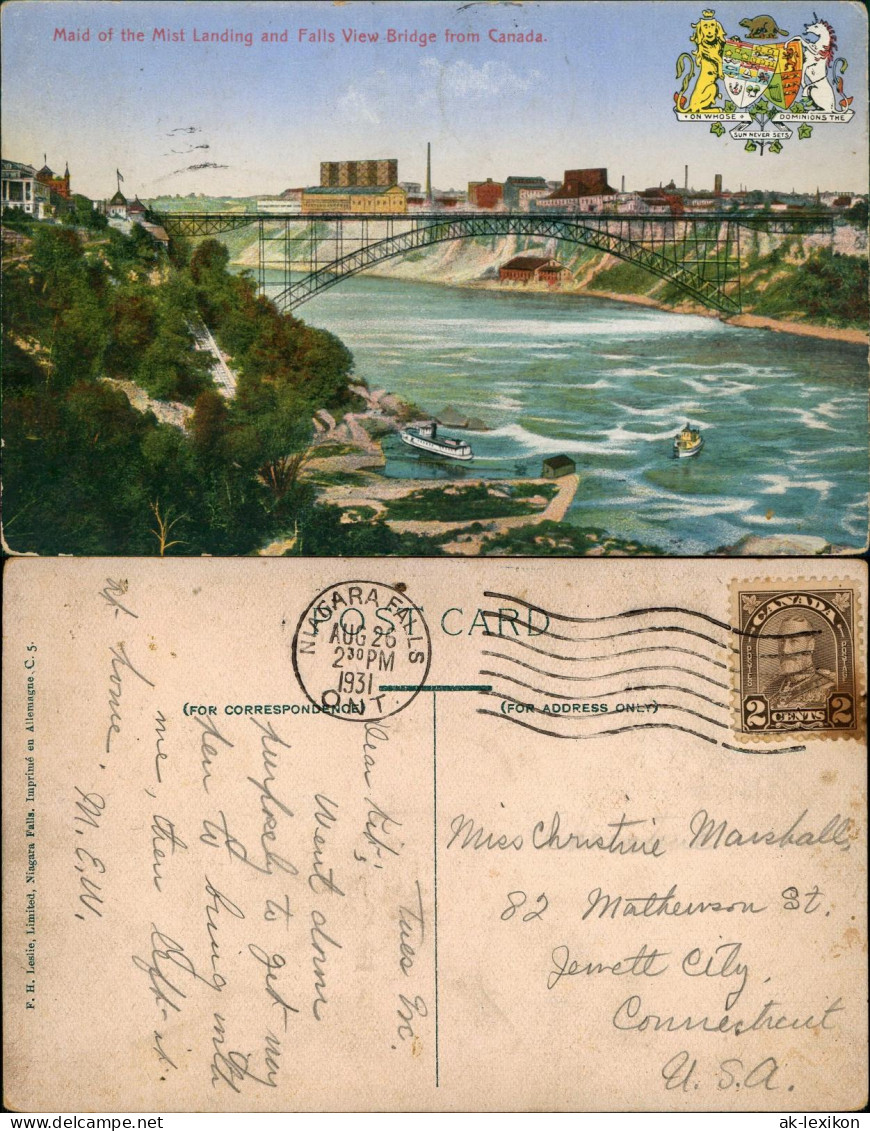 Maid of the Mist Landing and Falls View Bridge from Canada.
ON WHOSE
DOMIONS THE
SUN NEVER SETS
POST CARD
NIAGARA FALLS
AUG 26
2 30 PM
1931
ONT.
CANADA
POSTES
POSTAGE
2 CENTS 2
(FOR CORRESPONDENCE)
(FOR ADDRESS ONLY)
Tues M.
Dear Kit,
Went down
purposely to get my
pen to bring with
me, then left it
at home. M. E. W.
Miss Christine Marshall,
82 Mathewson St.
Jewett City
Connecticut
U. S. A.
F. H. Leslie, Limited, Niagara Falls. Imprimé en Allemagne. C. 5.
ak-lexikon